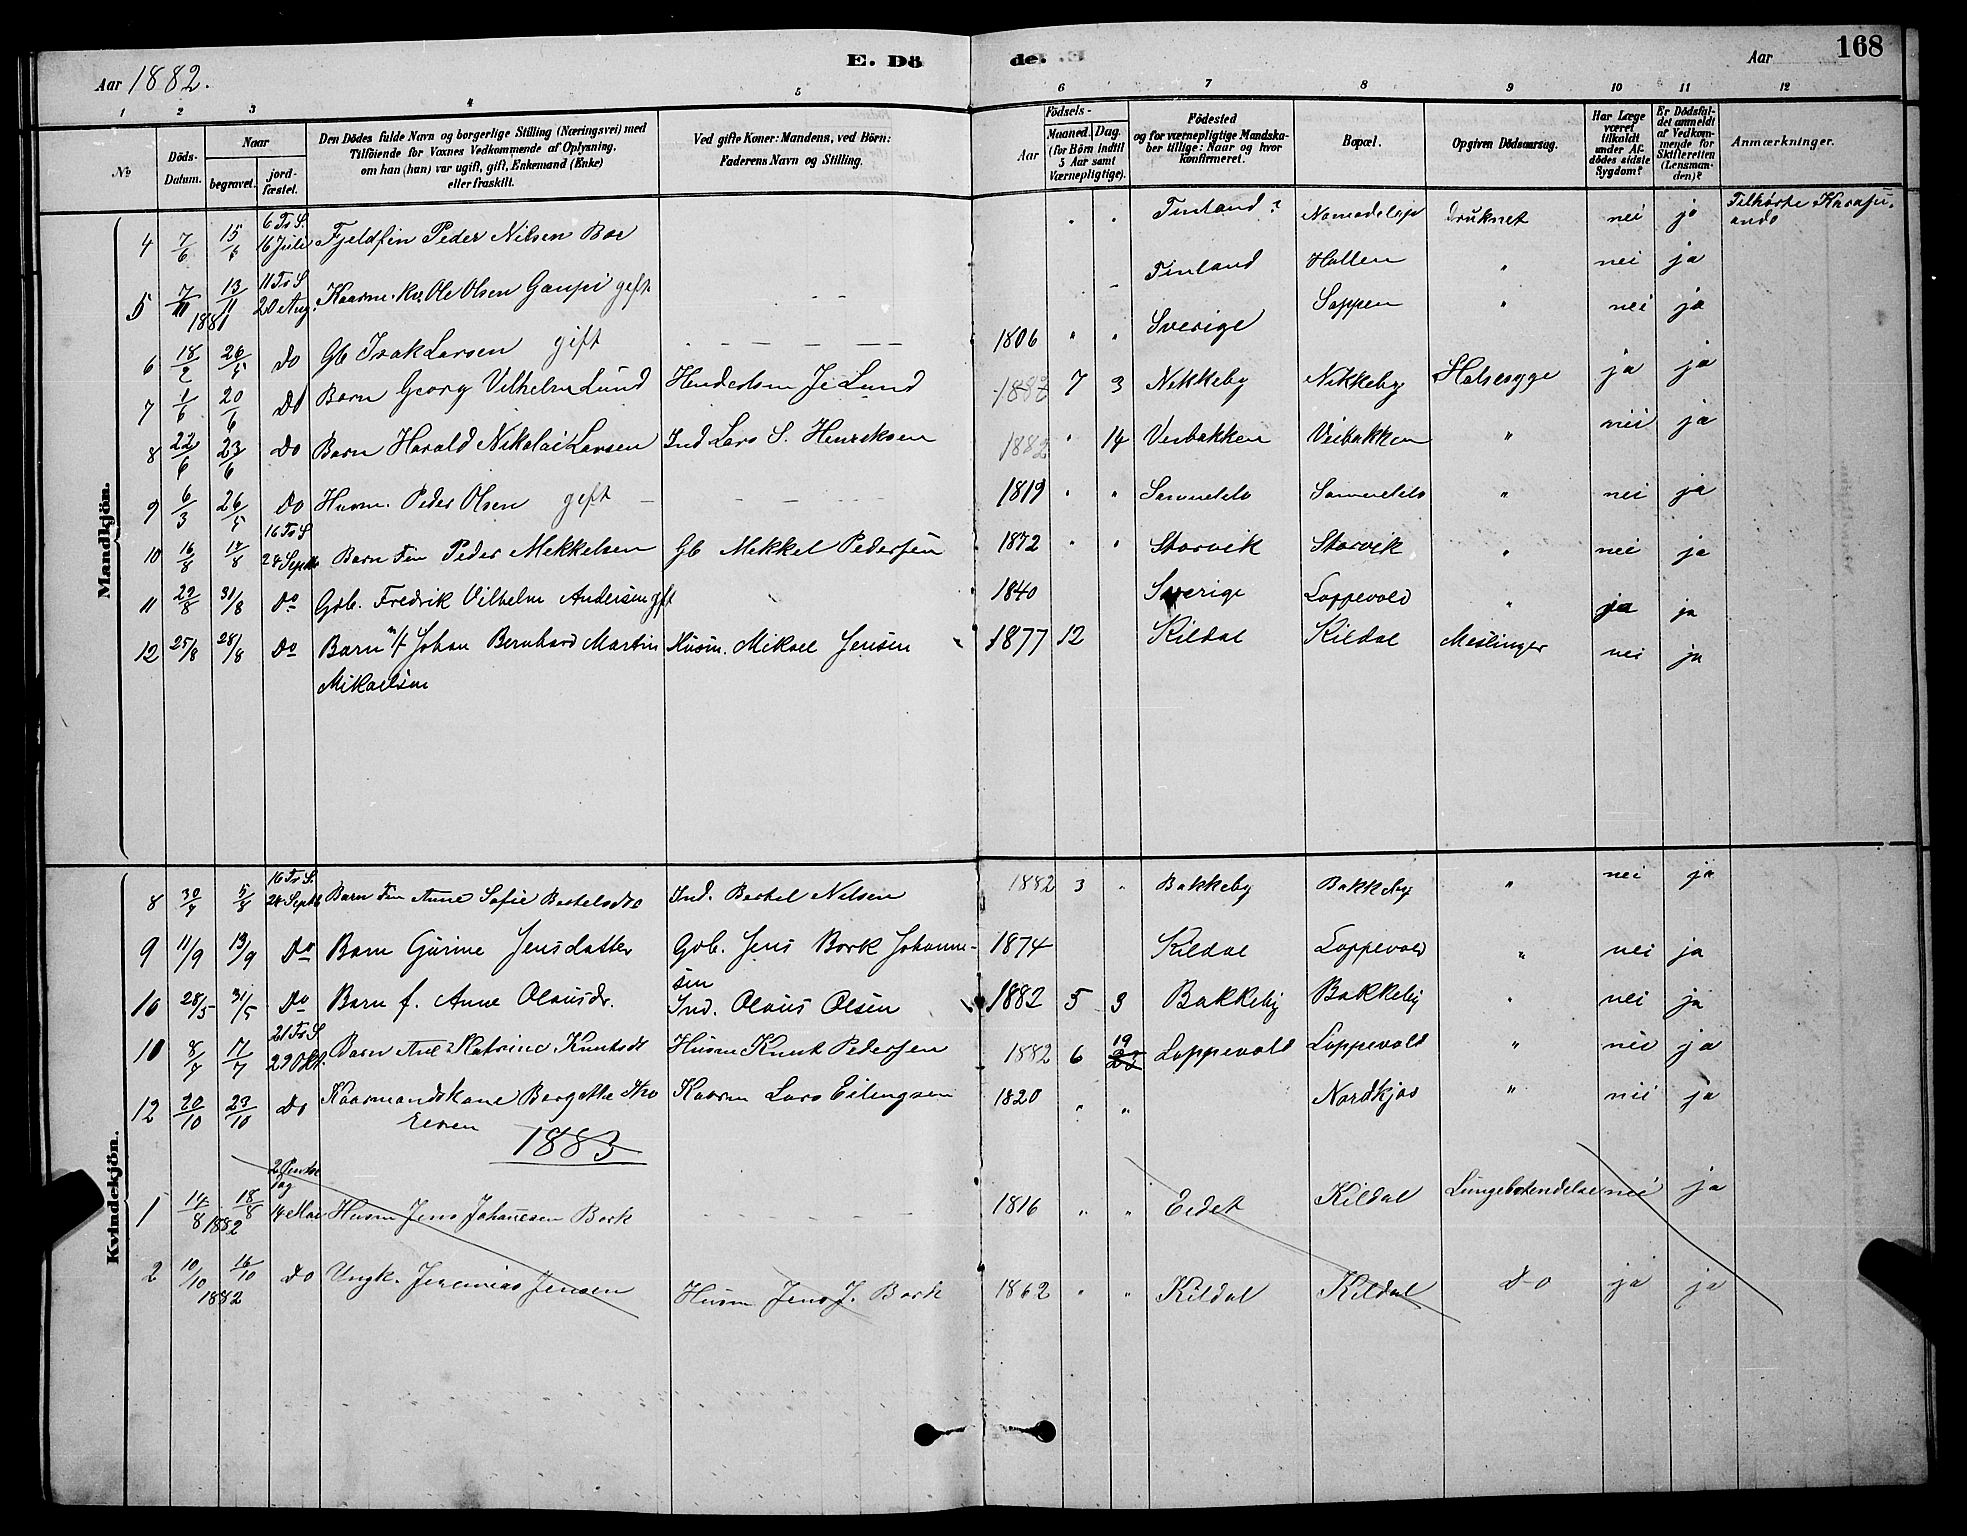 168
E. Dö
de.
Aar 1882.
Aar
1 2 3 4 5 6 7 8 9 10 11 12
№
Döds-Datum.
Naar
begravet.
jord-fæstet.
Den Dödes fulde Navn og borgerlige Stilling (Næringsvei) med
Tilföiende for Voxnes Vedkommende af Oplysning,
om han (hun) var ugift, gift, Enkemand (Enke)
eller fraskilt.
Ved gifte Koner: Mandens, ved Börn:
Faderens Navn og Stilling.
Födsels-
Aar
Maaned. Dag.
(for Börn indtil
5 Aar samt
Værnepligtige).
Födested
og for værnepligtige Mandska-
ber tillige: Naar og hvor
konfirmeret.
Bopæl.
Opgiven Dödsaarsag.
Har Læge
været
tilkaldt
under Af-
dödes sidste
Sygdom?
Er Dödsfal-
det anmeldt
af Vedkom-
mende for
Skifteretten
(Lensman-
den)?
Anmærkninger.
Mandkjön.
4 7/6 15/ 6 Tr S. 16 Juli Fjeldfin Peder Nilsen " " Finland? druknet nei ja Tilhørte
5 7/11 1881 13/11 11 Tr S 20 Aug. Ole Olsen Gaupi gift Finland Hallen " nei ja
6 18/2 26/5 Do Gb Isak Larsen gift 1806 " " Sverige Sappen " nei ja
7 1/6 20/6 Do Barn Georg Vilhelm Lund Lund 1882 7 3 Nikkeby Nikkeby Halsesyge ja ja
8 22/6 23/6 Do Barn Harald Nikolai Larsen Ind Lars S. Henriksen 1882 " 14 Veibakken Veibakken " nei ja
9 6/3 26/5 Do Husm. Peder Olsen gift 1819 " " " nei ja
10 16/8 17/8 16 Tr S 24 Septbr Barn Fin Peder Mekkelsen Gb Mekkel Pedersen 1872 " " Storvik Storvik " nei ja
11 22/8 31/8 Do Gdb. Fredrik Vilhelm Andersen gft 1840 Sverige Loppevold " ja ja
12 25/8 28/8 Do Barn Johan Bernhard Martin Husm. Mikael Jensen 1877 12 Kildal Kildal Meslinger nei ja
Mikaelsen
Kvindekjön.
8 30/7 5/8 16 Tr S. 24 Septbr Barn Fin Anne Sofie Bertelsdtr Ind. Bertel Nilsen 1882 3 " Bakkeby Bakkeby " nei ja
9 11/9 13/9 Do Barn Gurine Jensdatter Gdb. Jens Bork Johanne- 1874 Kildal Loppevold " nei ja
sen
10 28/5 31/5 Do Barn f. Anne Olausdr. Ind. Olaus Olsen 1882 5 3 Bakkeby Bakkeby " nei ja
10 8/7 17/7 21 Tr S 29 Okt. Barn Ane Katrine Knutsdt Husm Knut Pedersen 1882 6 19 23 Loppevold Loppevold " nei ja
12 20/10 23/10 Do Kaarmandskone Bergitte Kaarm Lars Eilingsen 1820 " " Nordkjos " nei ja
1883
1 14/8 1882 18/8 2 Pintse dag 14 Mai Husm Jens Johannesen Bork 1816 " " Eidet Kildal Lungebetendelse nei ja
2 10/10 1882 16/10 Do Ungk. Jeremias Jensen Husm Jens J. Bork 1862 " " Kildal Kildal Do ja ja